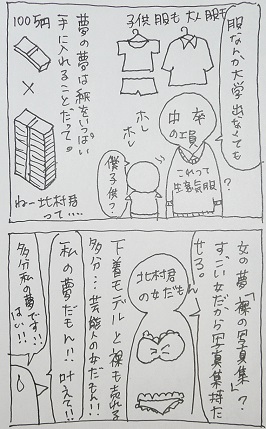 服なんか大学出なくても
子供服も 大人服も
中卒
の工員
これって
生意気服
?
ホレ
ホレ
僕子供?
夢の夢は紙をいっぱい
手に入れることだって。
100網
×
ねー北村君
って....
女の夢「裸の写真集」?
すごい女だから写真集持た
せろ。
北村君
の女だもん
下着モデルと裸も売れる
多分…芸能人の女だもん!!
私の夢だもん!!叶えて!!
多分私の夢です!!
はい!!